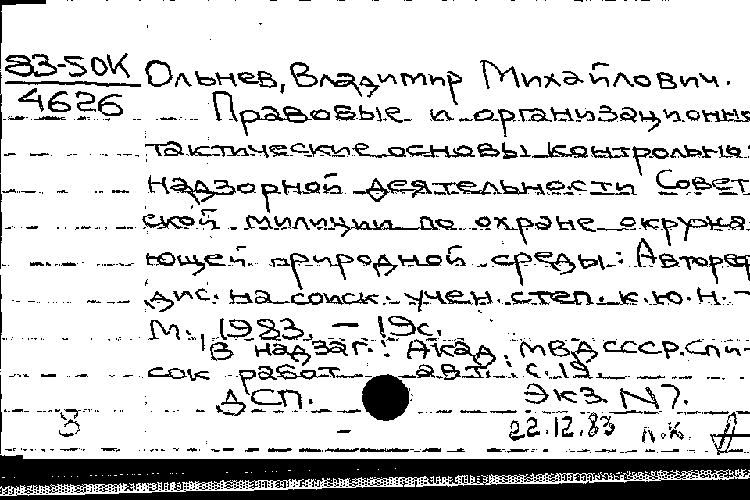 83-50К Ольнев, Владимир Михайлович.
4626 Правовые и организационно
тактические основы контрольно-
надзорной деятельности Совет
ской милиции по охране окружа
ющей природной среды: Авторе
дис. на соиск. учен. степ. к.ю.н. -
М., 1983. - 19с.
В надзаг.: Акад. МВД СССР. Спи-
сок работ авт.: с. 19.
ДСП. Экз. N7.
8 - 22.12.83 л.к.